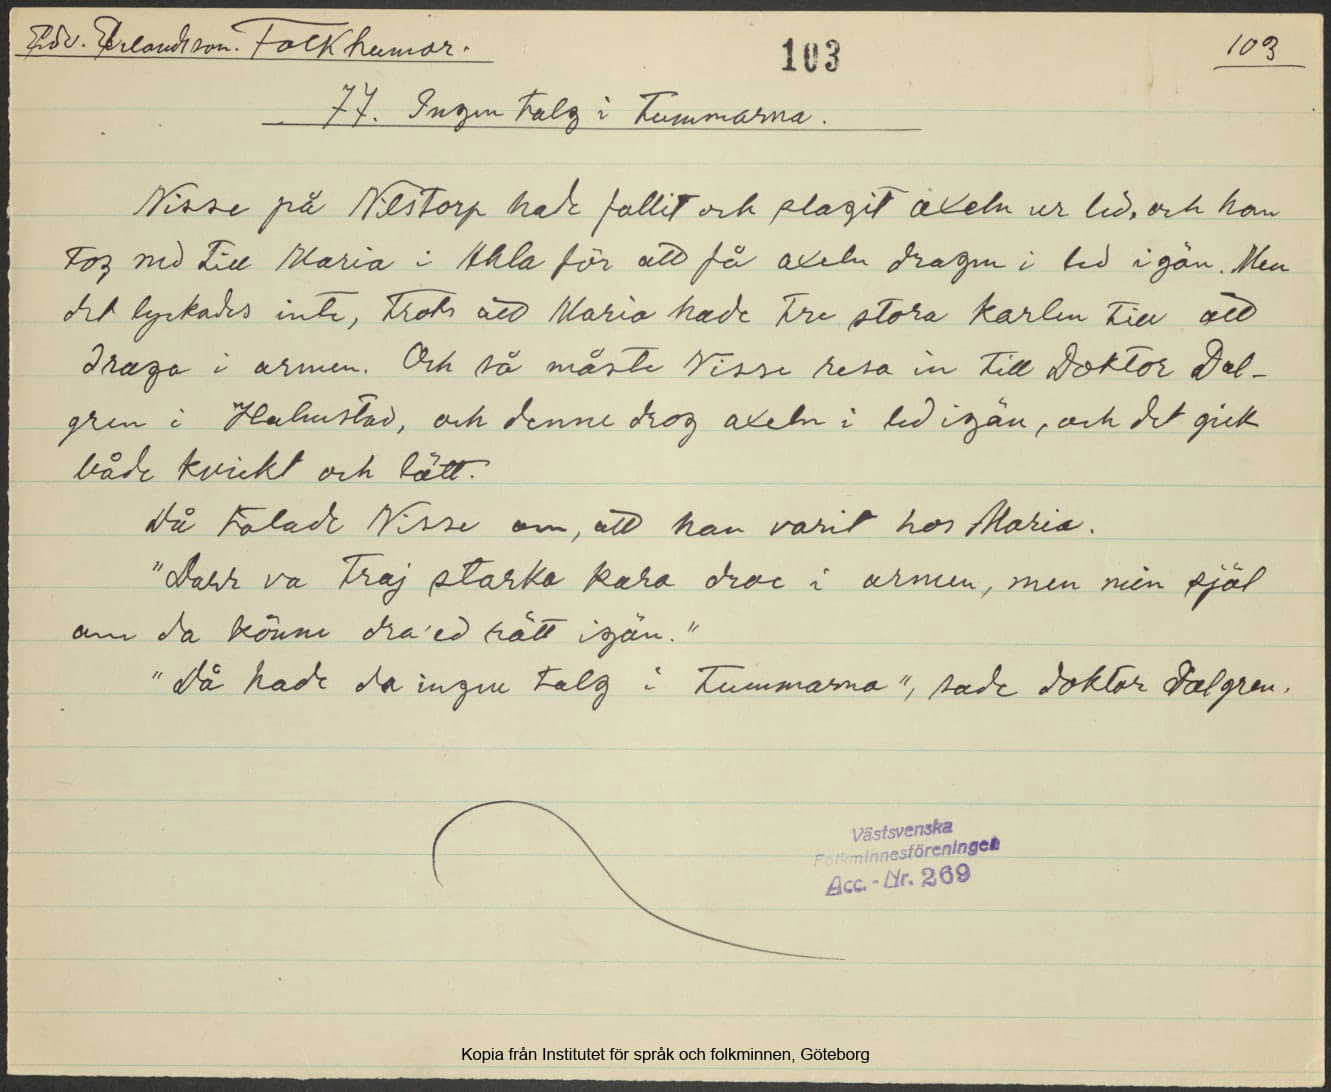 Edv. Erlandson. Folkhumor.
103
103
77. Ingen talg i tummarna.
Nisse på Nilstorp hade fallit och slagit axeln ur led, och han
tog ned till Maria i Ahla för att få axeln dragen i led igän. Men
det lyckades inte, trots att Maria hade tre stora karlen till att
draga i armen. Och så måste Nisse resa in till Doktor Dal-
gren i Halmstad, och denne drog axeln i led igän, och det gick
både kvickt och lätt.
Då talade Nisse om, att han varit hos Maria.
"Darr va traj starka kara droe i armen, men min själ
om da könne dra'ed rätt igän."
"Då hade da ingen talg i tummarna", sade doktor Dalgren.
Västsvenska
Folkminnesföreningen
Acc.-Nr. 269
Kopia från Institutet för språk och folkminnen, Göteborg